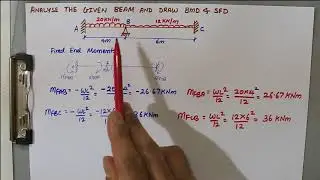 ANALYSE THE GIVEN BEAM AND DRAW BMD & SFD
20KN/m B 12KN/m
A C
4m 6m
Fixed End Moments
MFAB = -wL²/12 = -20x4²/12 = -26.67 KNm
MFBA = wL²/12 = 20x4²/12 = 26.67 KNm
MFBC = -wL²/12 = -12x6²/12 = -36 KNm
MFCB = wL²/12 = 12x6²/12 = 36 KNm